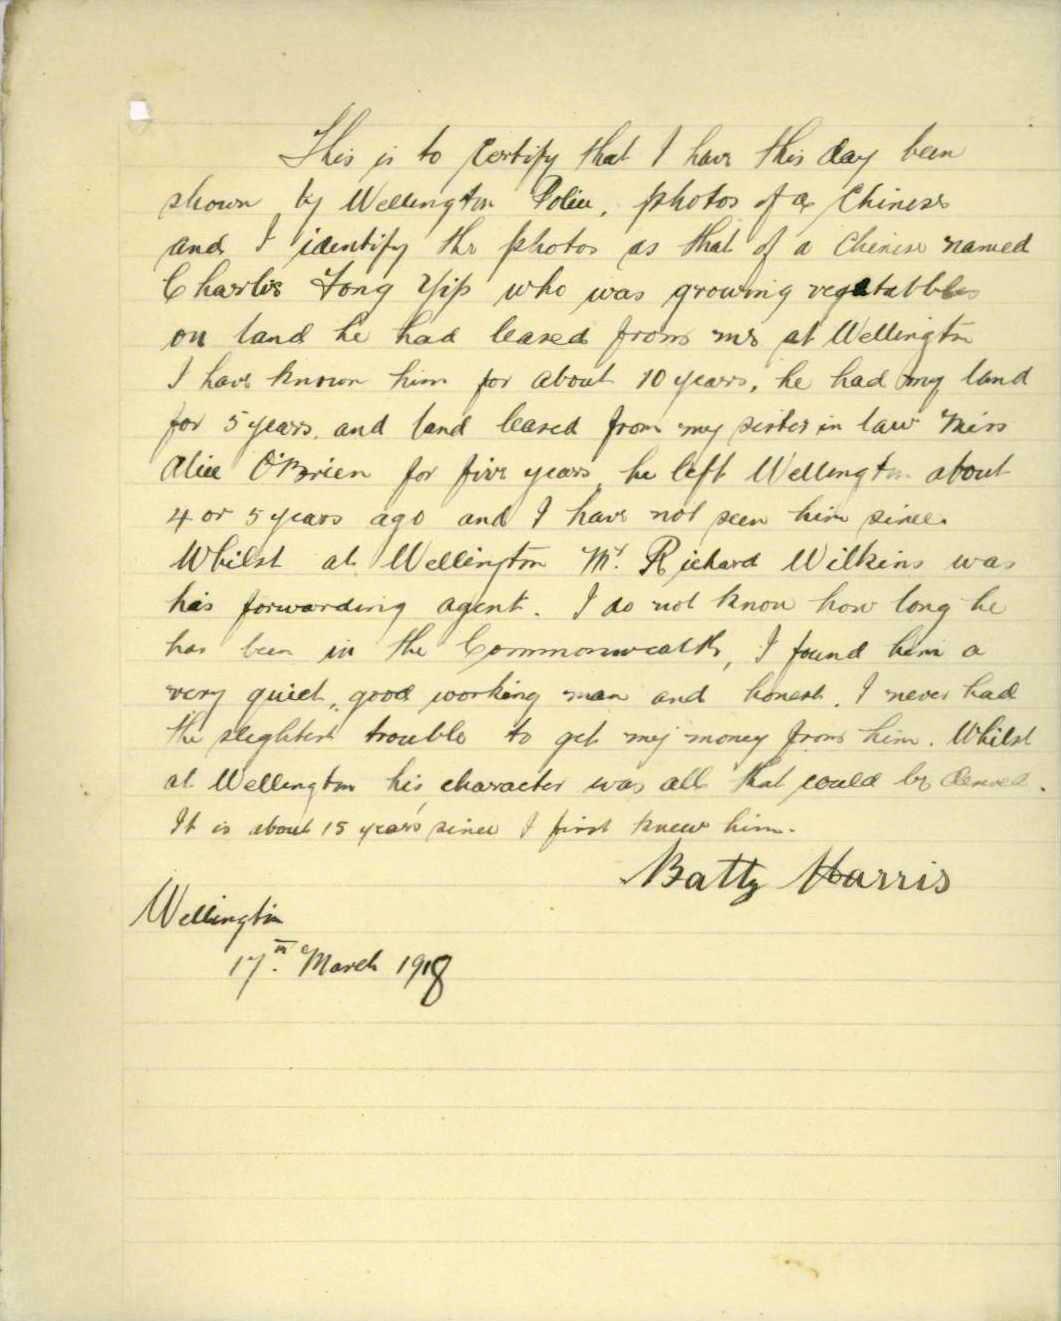 This is to certify that I have this day been
shown by Wellington Police, photos of a Chinese
and I identify the photos as that of a Chinese named
Charles Fong Yip who was growing vegetables
on land he had leased from me at Wellington
I have known him for about 10 years, he had my land
for 5 years. and land leased from my sister in law Miss
Alice O'Brien for five years, he left Wellington about
4 or 5 years ago and I have not seen him since.
Whilst at Wellington Mr. Richard Wilkins was
his forwarding agent. I do not know how long he
has been in the Commonwealth, I found him a
very quiet, good working man and honest. I never had
the slightest trouble to get my money from him. Whilst
at Wellington his character was all that could be desired.
It is about 15 years since I first knew him.
Batty Harris
Wellington
17th. March 1918